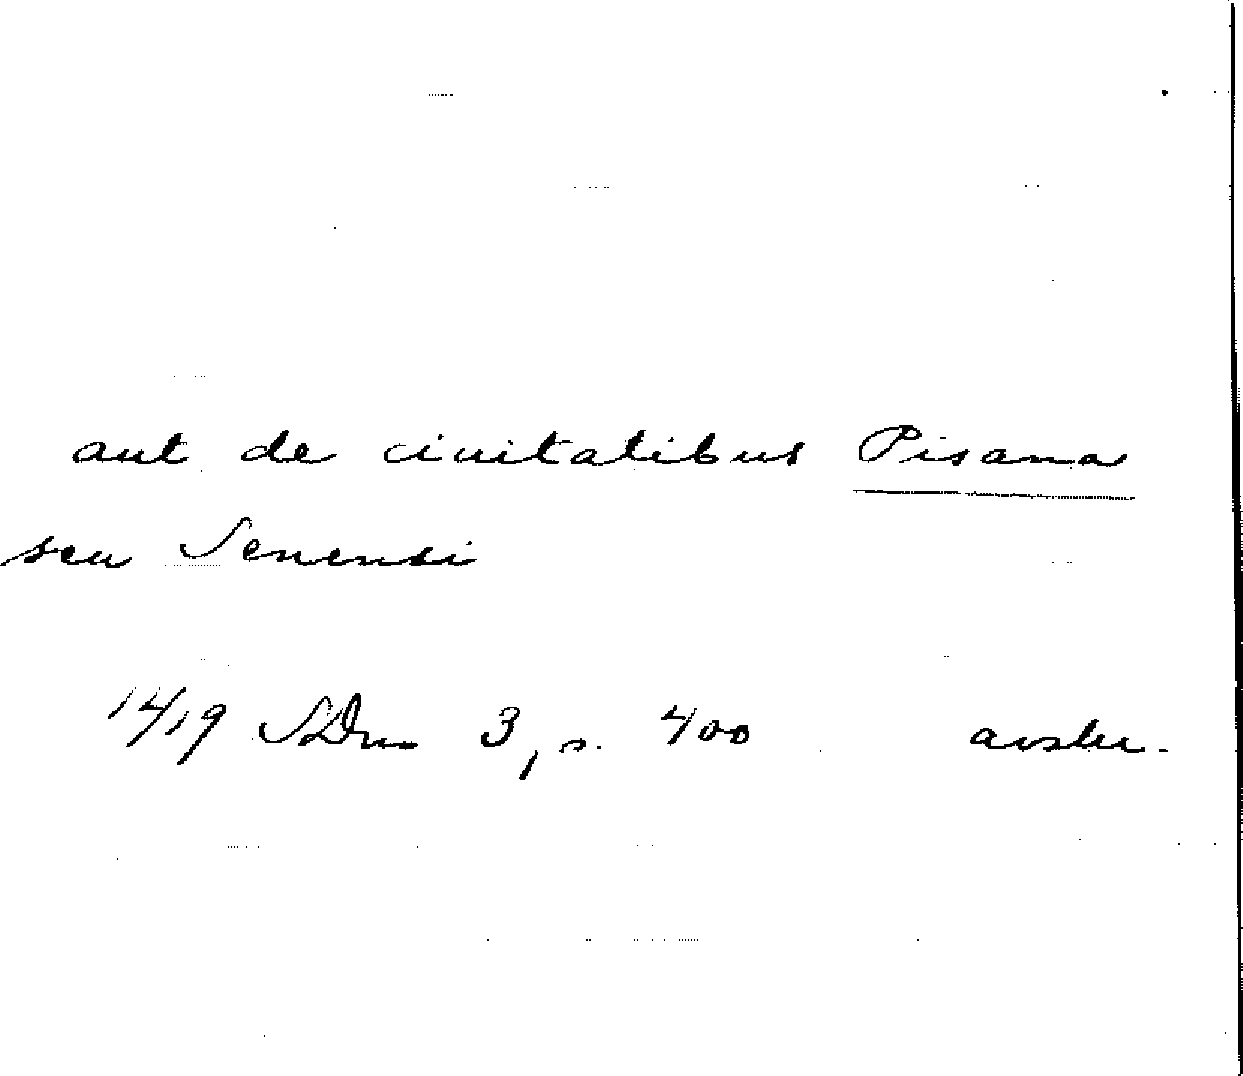 aut de ciuitatibus Pisana
seu Senensi
14/19 SDn 3, s. 400 avskr.